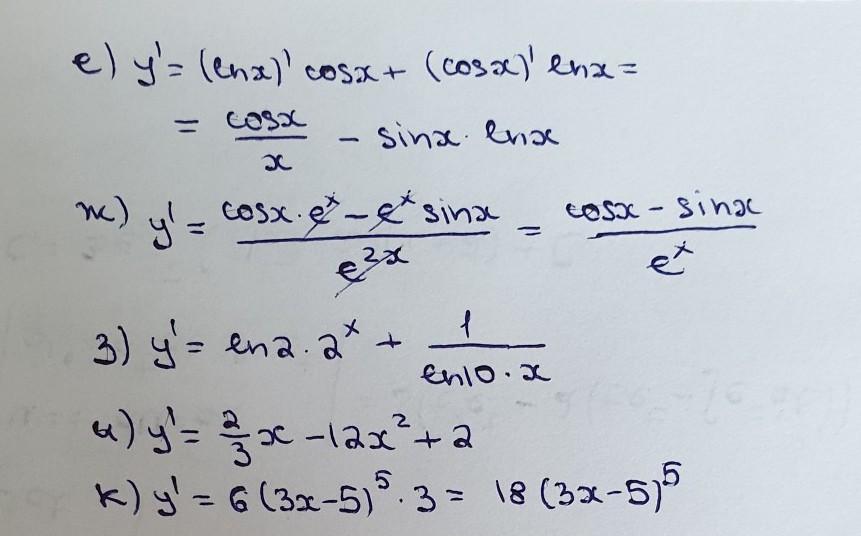 е) y' = (lnx)' cosx + (cosx)' lnx =
= cosx/x - sinx · lnx
ж) y' = (cosx · eˣ - eˣ sinx)/e²ˣ = (cosx - sinx)/eˣ
з) y' = ln2 · 2ˣ + 1/(ln10 · x)
и) y' = 2/3 x - 12x² + 2
к) y' = 6(3x-5)⁵ · 3 = 18(3x-5)⁵